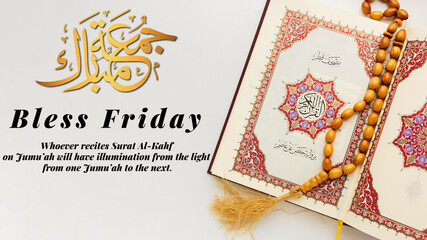 جمعة مباركة
Bless Friday
Whoever recites Surat Al-Kahf
on Jumu'ah will have illumination from the light
from one Jumu'ah to the next.
القرآن الكريم